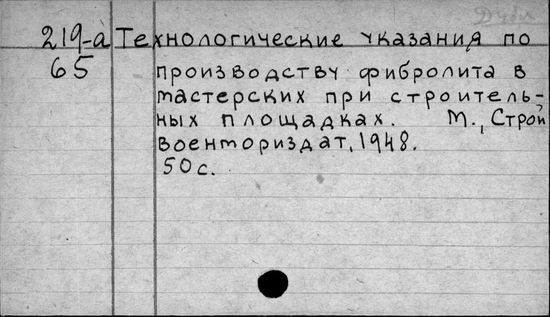 Дубл
219-а Технологические указания по
65 производству фибролита в
мастерских при строитель-
ных площадках. М., Строй
военториздат, 1948.
50 с.